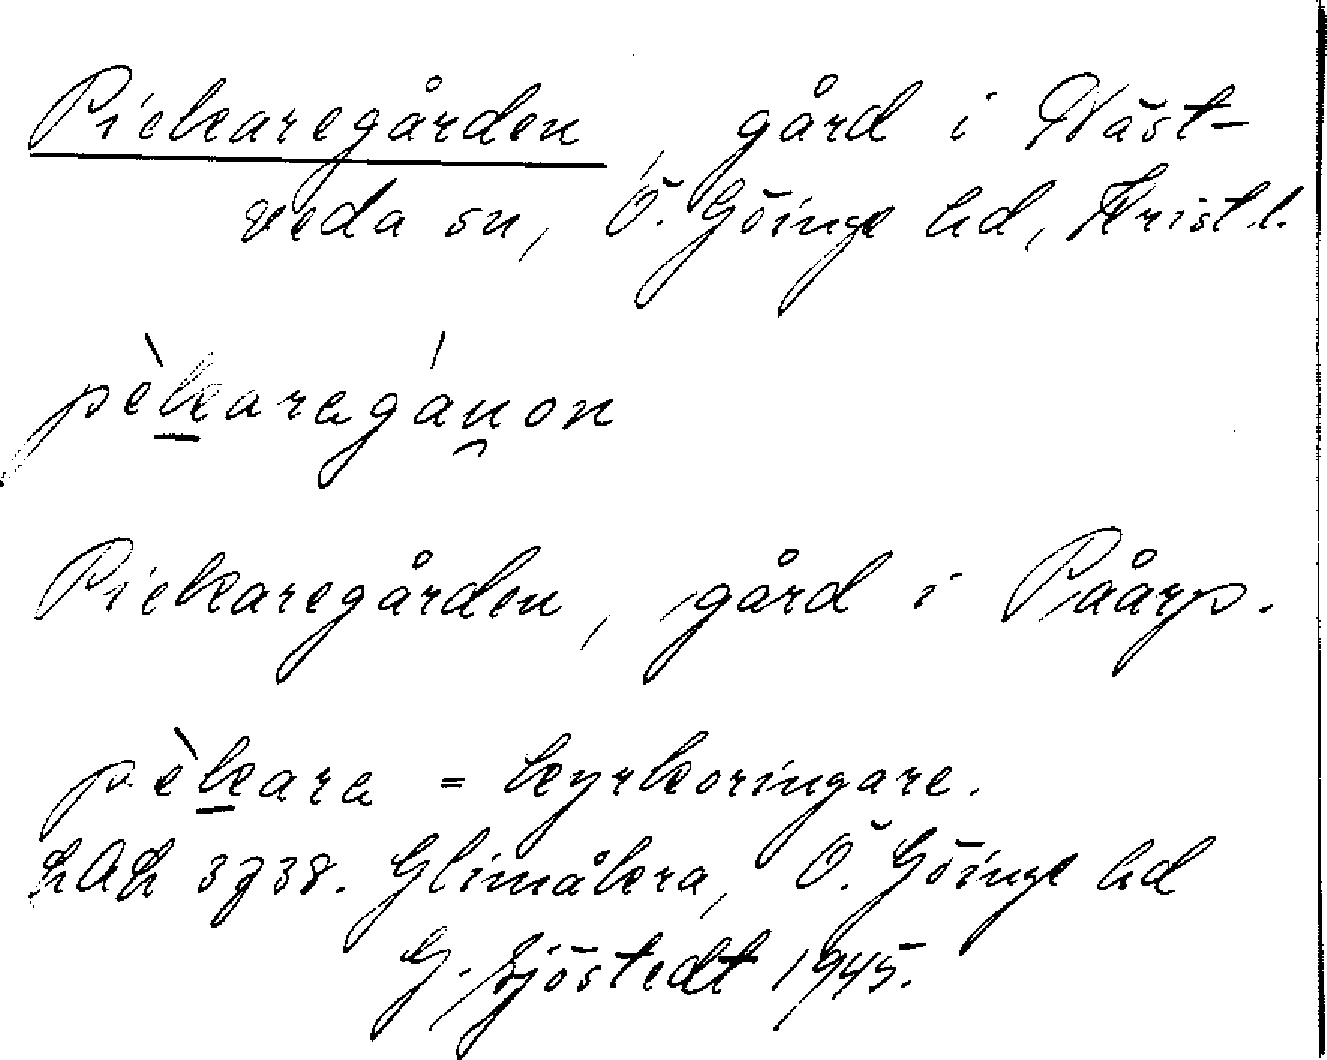 Pickaregården, gård i Näst-
veda sn, Ö. Göinge hd, Kristl.
pèkaragánon
Pickaregården, gård i Påarp.
pèkara = kyrkoringare.
LAL 3738. Glimåkra, Ö. Göinge hd
G. Sjöstedt 1945.